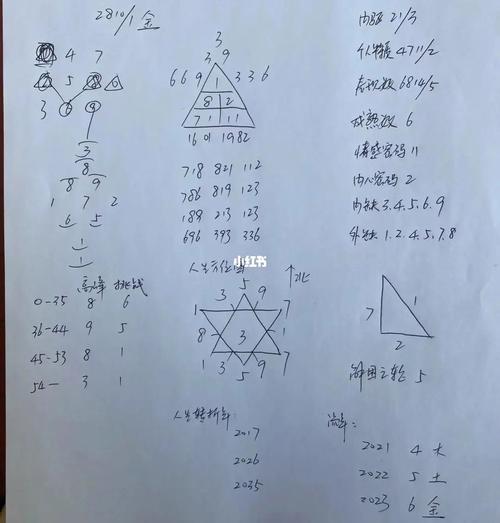 2810/1 金
4 7
5 8 0
3 6 9
3
8
8 9
1 7 2
6 5
1
1
高峰 挑战
0-35 8 6
36-44 9 5
45-53 8 1
54- 3 1
3
3 9
6 6 9 1 3 3 6
8 2
7 1 1 1
16 01 19 82
718 821 112
786 819 123
189 213 123
696 393 336
小红书
人生方位图 北
5
3 9
1 7
8 3 1
1 7
3 9
5
人生转折年:
2017
2026
2035
内驱 21/3
个人特质 4711/2
表现数 6814/5
成熟数 6
情感密码 11
内心密码 2
内缺 3.4.5.6.9
外缺 1.2.4.5.7.8
7 1
2
解困之轮 5
流年:
2021 4 木
2022 5 土
2023 6 金